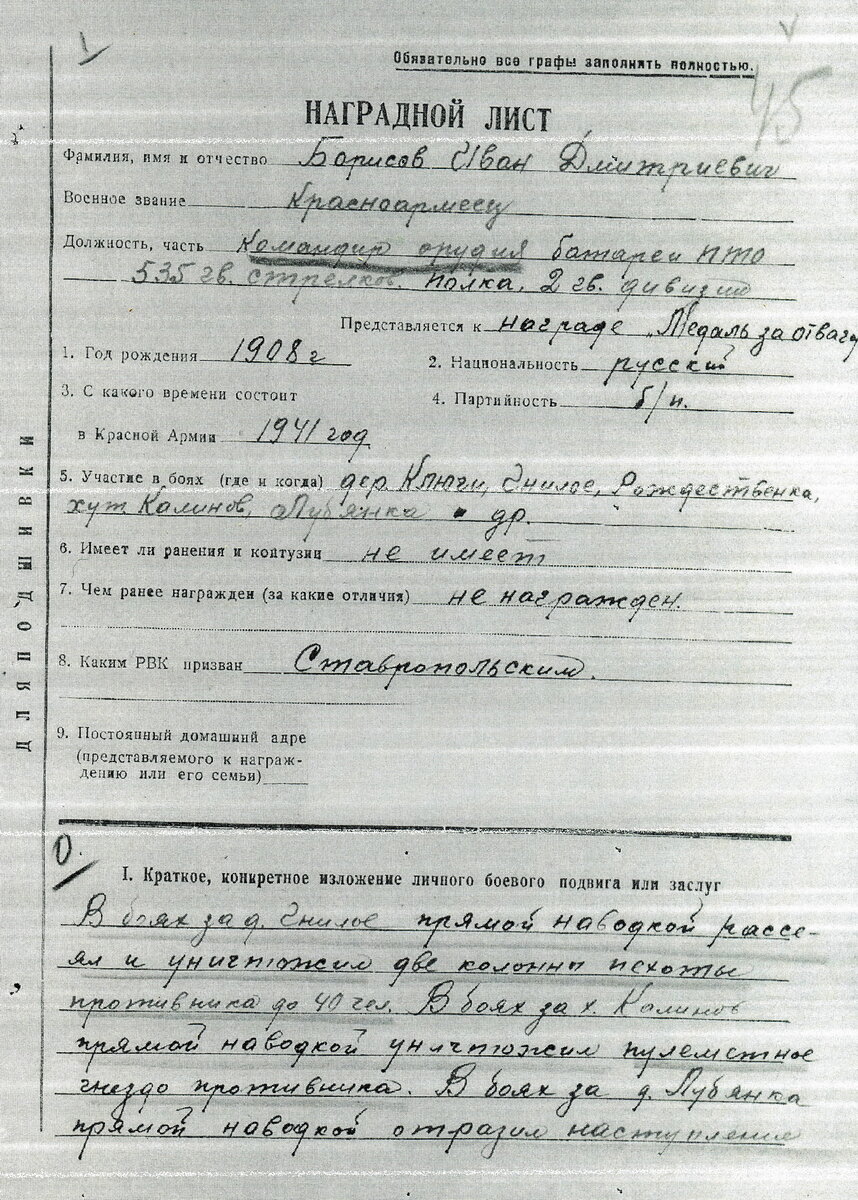 Обязательно все графы заполнять полностью.
45
НАГРАДНОЙ ЛИСТ
Фамилия, имя и отчество Борисов Иван Дмитриевич
Военное звание Красноармеец
Должность, часть Командир орудия батареи ПТО
535 гв. стрелков. полка, 2 гв. дивизии
Представляется к награде „Медаль за отвагу
1. Год рождения 1908 г
2. Национальность русский
3. С какого времени состоит
4. Партийность б/п.
в Красной Армии 1941 год
5. Участие в боях (где и когда) дер. Ключи, Гнилое, Рождественка,
хут. Калинов, Лубянка и др.
6. Имеет ли ранения и контузии не имеет
7. Чем ранее награжден (за какие отличия) не награжден.
8. Каким РВК призван Ставропольским.
9. Постоянный домашний адре
(представляемого к награж-
дению или его семьи)
ДЛЯ ПОДШИВКИ
I. Краткое, конкретное изложение личного боевого подвига или заслуг
В боях за д. Гнилое прямой наводкой рассе-
ял и уничтожил две колонны пехоты
противника до 40 чел. В боях за х. Калинов
прямой наводкой уничтожил пулеметное
гнездо противника. В боях за д. Лубянка
прямой наводкой отразил наступление